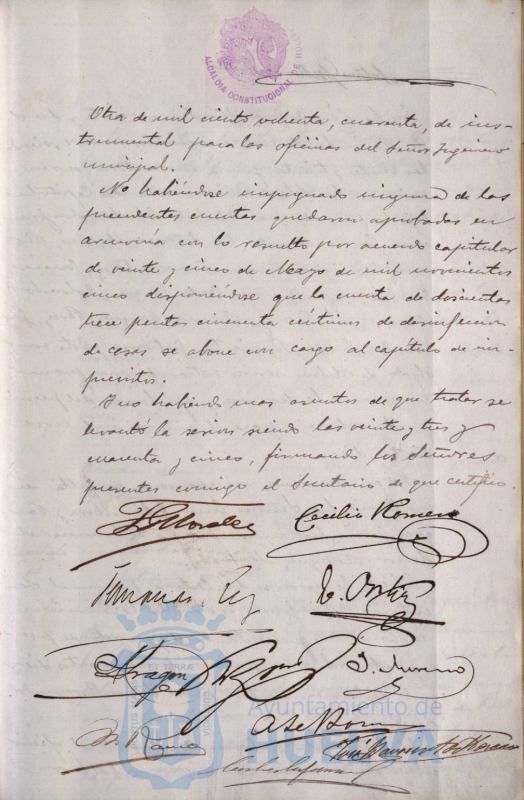 ALCALDIA CONSTITUCIONAL DE HUELVA
Otra de mil ciento ochenta, cuarenta, de ins-
trumental para las oficinas del Señor Ingeniero
municipal.
No habiéndose impugnado ninguna de las
precedentes cuentas quedaron aprobadas en
armonía con lo resuelto por acuerdo capitular
de veinte y cinco de Mayo de mil novecientos
cinco disponiéndose que la cuenta de doscientas
trece pesetas cincuenta céntimos de desinfeccion
de casas se abone con cargo al capítulo de im-
previstos.
Y no habiendo mas asuntos de que tratar se
levantó la sesion siendo las veinte y tres y
cuarenta y cinco, firmando los Señores
presentes conmigo el Secretario de que certifico.
Morales
Cecilio Romero
T. Ortiz
Aragon
J. Moreno
Ayuntamiento de
HUELVA